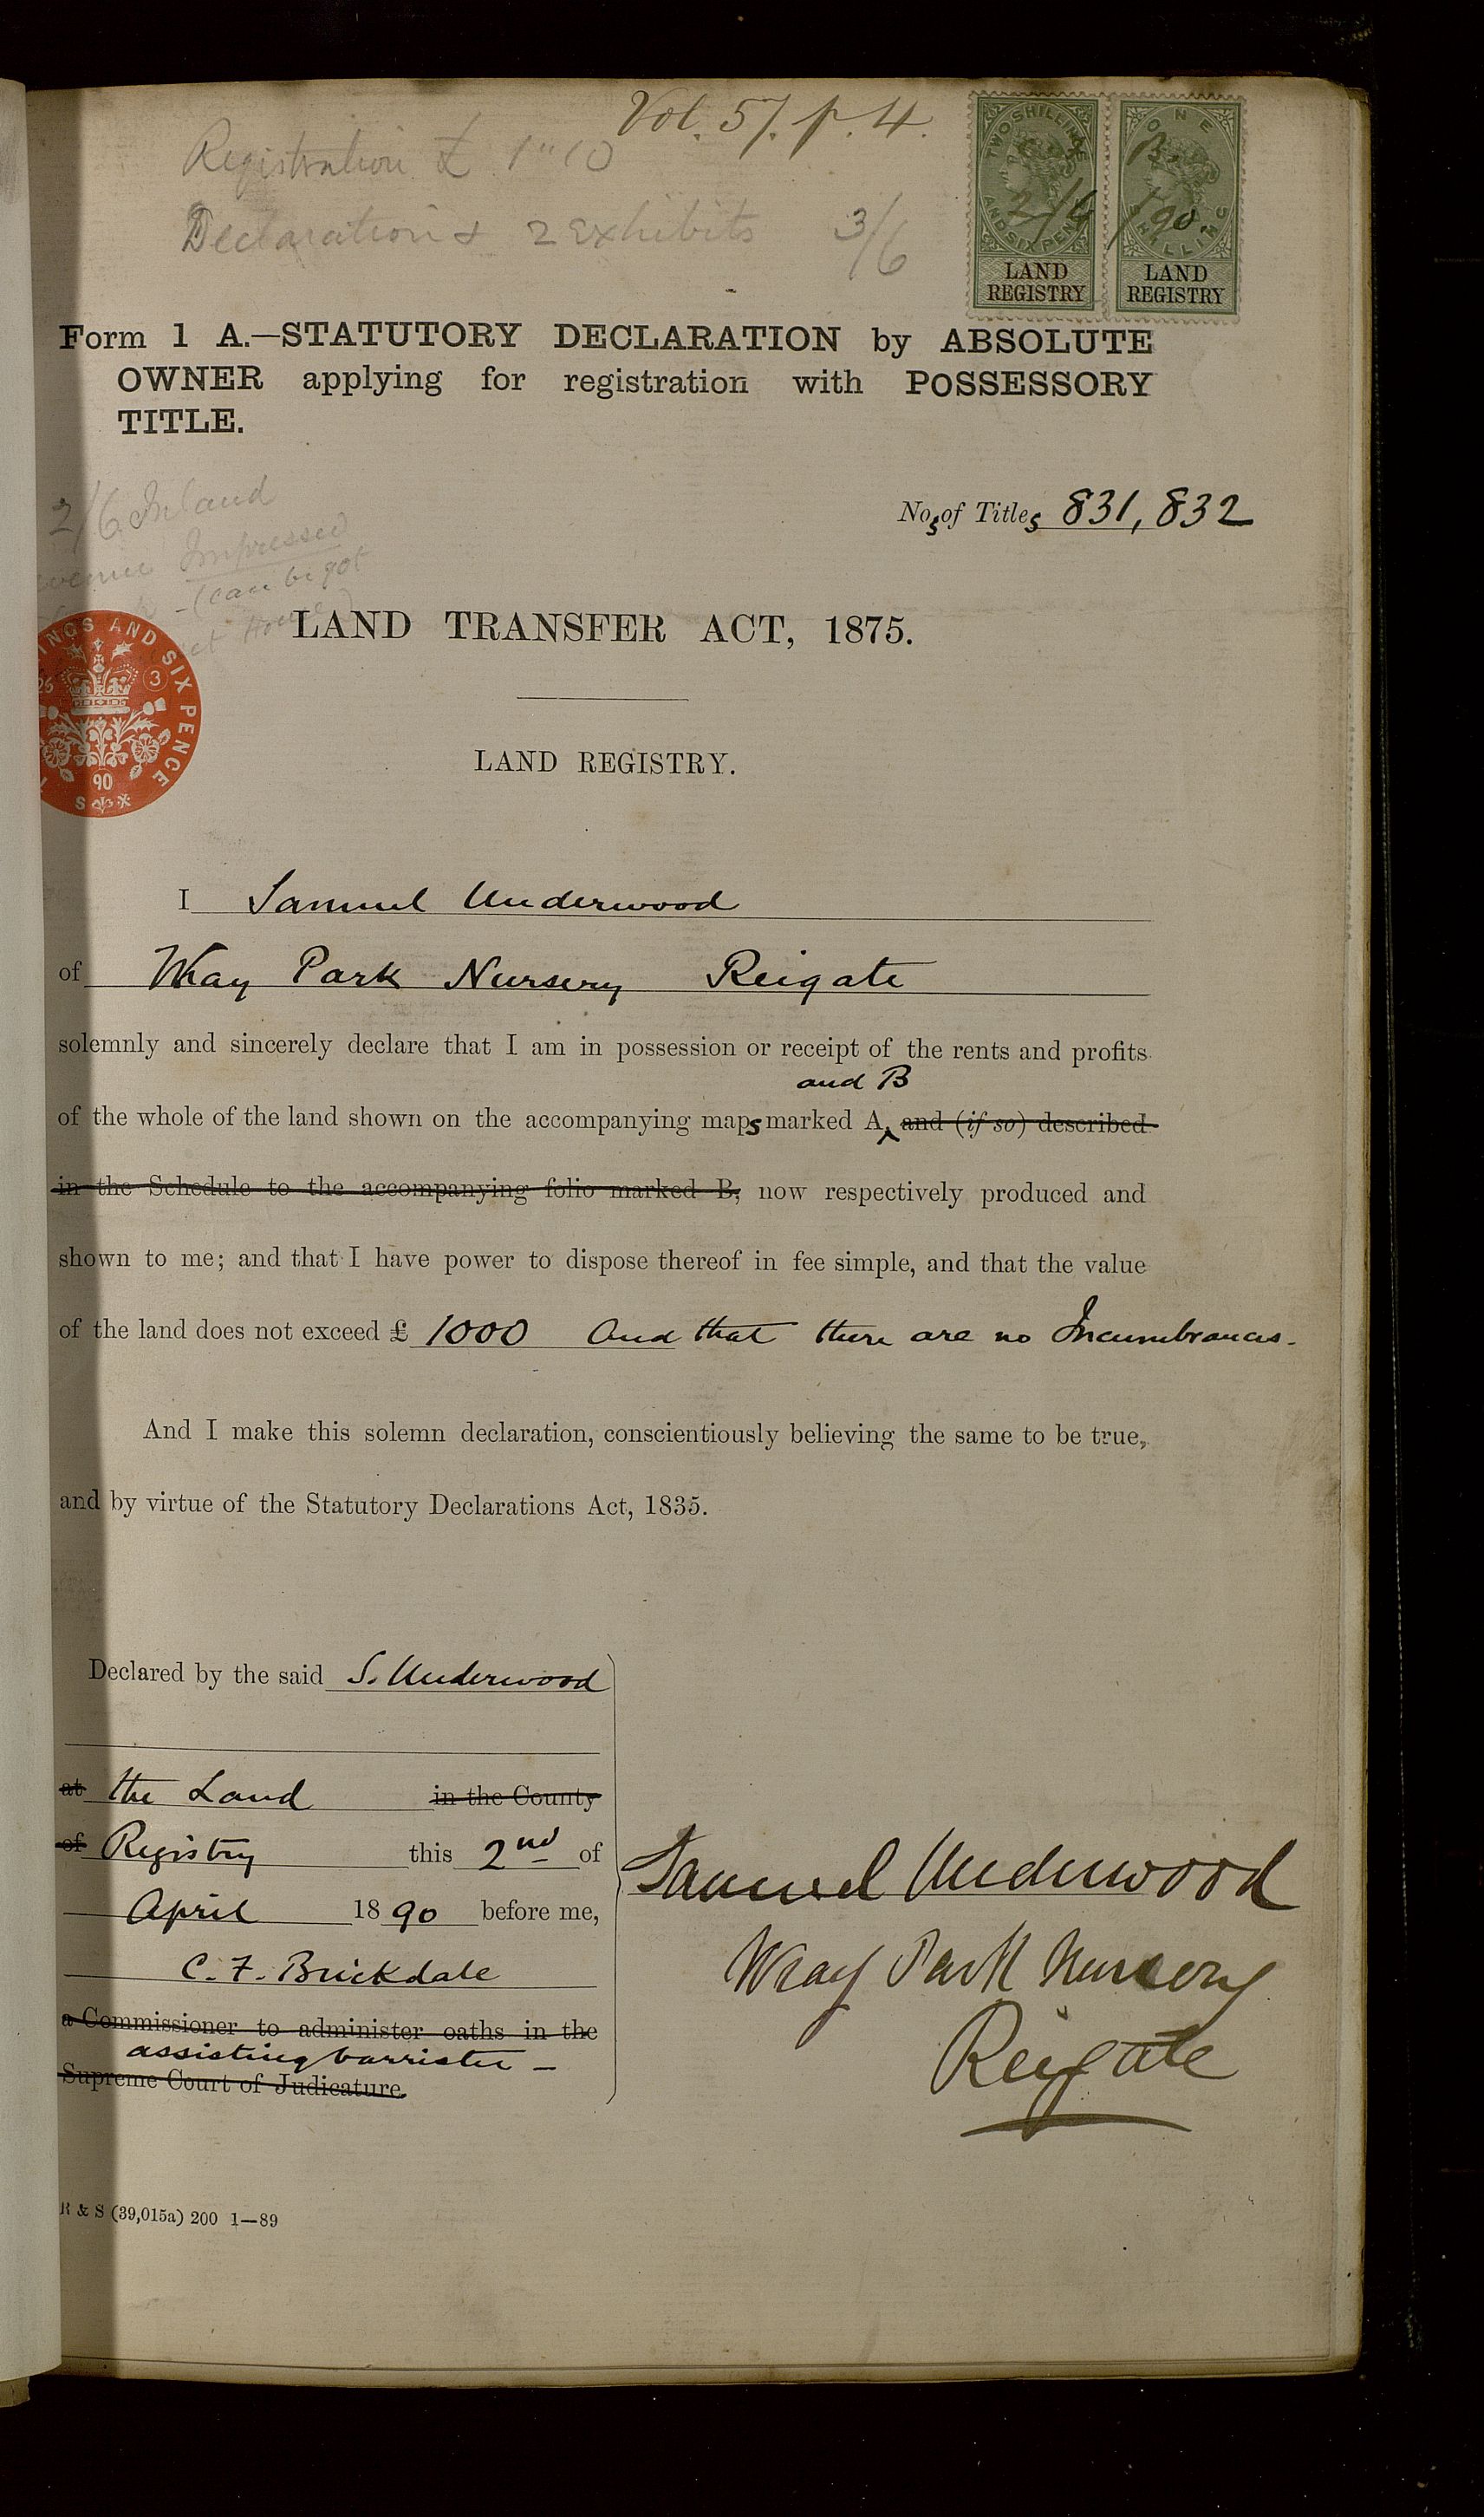 Vol. 57. p. 4.
Registration £ 1" 10
Declaration & 2 Exhibits 3/6
TWO SHILLINGS AND SIX PENCE
2/4
LAND REGISTRY
ONE SHILLING
/90.
LAND REGISTRY
Form 1 A.—STATUTORY DECLARATION by ABSOLUTE
OWNER applying for registration with POSSESSORY
TITLE.
2/6 Inland
Impressed
(can be got
Nos of Titles 831, 832
LAND TRANSFER ACT, 1875.
INGS AND SIX PENCE
25 3
90
LAND REGISTRY.
I Samuel Underwood
of Wray Park Nursery Reigate
solemnly and sincerely declare that I am in possession or receipt of the rents and profits
and B
of the whole of the land shown on the accompanying maps marked A, and (if so) described
in the Schedule to the accompanying folio marked B, now respectively produced and
shown to me; and that I have power to dispose thereof in fee simple, and that the value
of the land does not exceed £ 1000 And that there are no Incumbrances.
And I make this solemn declaration, conscientiously believing the same to be true,
and by virtue of the Statutory Declarations Act, 1835.
Declared by the said S. Underwood
at the Land in the County
of Registry this 2nd of
April 1890 before me,
C. F. Brickdale
a Commissioner to administer oaths in the
assisting barrister —
Supreme Court of Judicature.
Samuel Underwood
Wray Park Nursery
Reigate
R & S (39,015a) 200 1—89